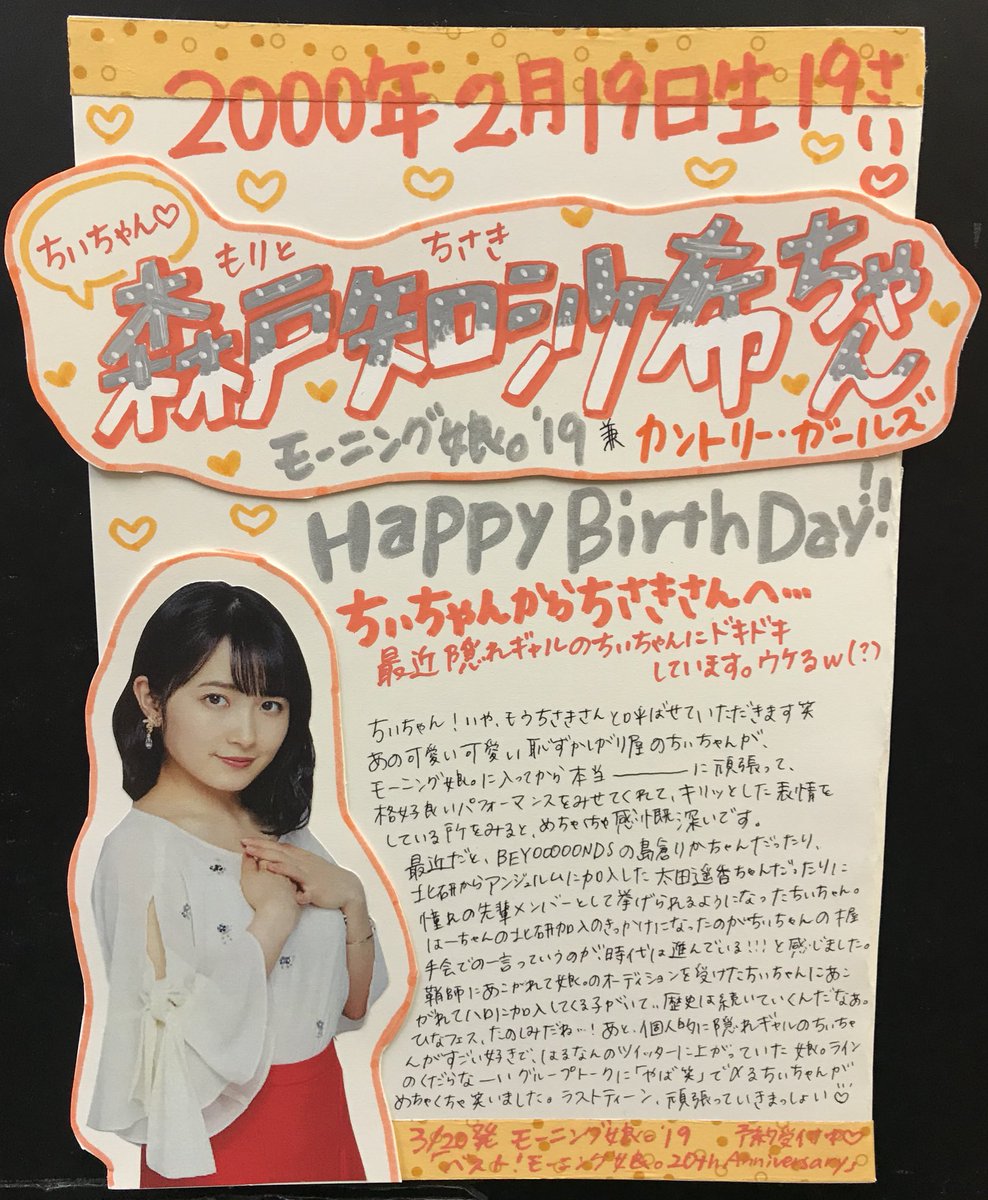 2000年2月19日生19さい♡
ちいちゃん♡
もりと ちさき
森戸知沙希ちゃん
モーニング娘。'19 兼 カントリー・ガールズ
Happy BirthDay!!
ちぃちゃんからちさきさんへ…
最近隠れギャルのちぃちゃんにドキドキ
しています。ウケるw(?)
ちぃちゃん!いや、もうちさきさんと呼ばせていただきます笑
あの可愛い可愛い恥ずかしがり屋のちぃちゃんが、
モーニング娘。に入ってから本当―――に頑張って、
格好良いパフォーマンスをみせてくれて、キリッとした表情を
している所をみると、めちゃくちゃ感慨深いです。
最近だと、BEYOOOOONDSの島倉りかちゃんだったり、
北研からアンジュルムに加入した太田遥香ちゃんだったりに
憧れの先輩メンバーとして挙げられるようになったちぃちゃん。
はーちゃんの北研加入のきっかけになったのがちぃちゃんの握
手会での一言っていうのが時代は進んでいる!!!と感じました。
鞘師にあこがれて娘。のオーディションを受けたちぃちゃんにあこ
がれてハロに加入してくる子がいて…歴史は続いていくんだなぁ。
ひなフェス、たのしみだね…!あと、個人的に隠れギャルのちぃちゃ
んがすごい好きで、はるなんのツイッターに上がっていた娘。ライン
のくだらなーいグループトークに「やば笑」で〆るちぃちゃんが
めちゃくちゃ笑いました。ラストティーン、頑張っていきまっしょい♡
3/20発 モーニング娘。'19 予約受付中♡
「ベスト!モーニング娘。20th Anniversary」